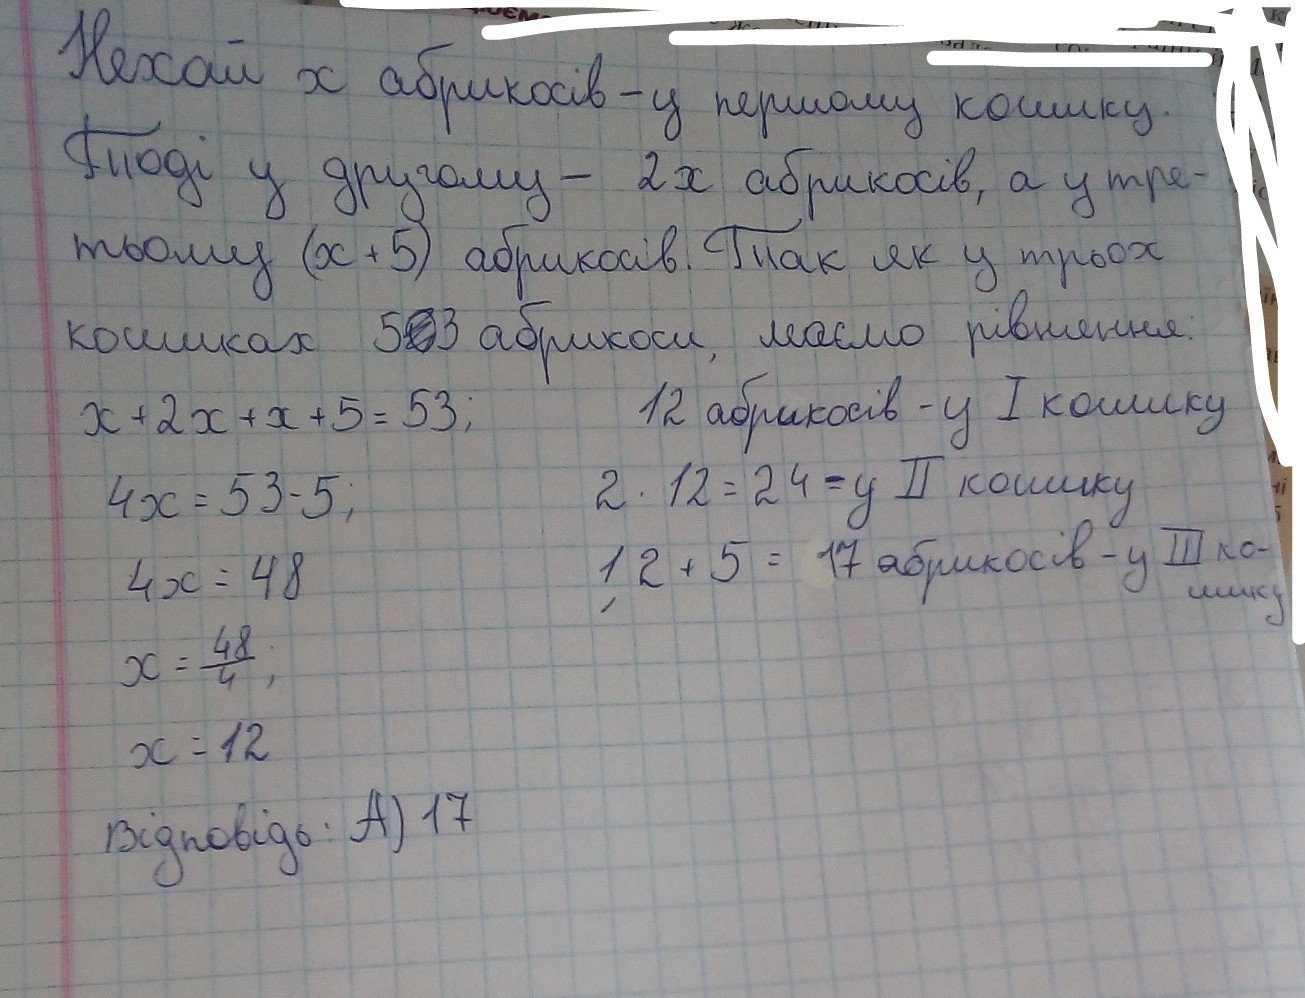 Нехай x абрикосів - у першому кошику.
Тоді у другому - 2x абрикосів, а у тре-
тьому (x + 5) абрикосів. Так як у трьох
кошиках 53 абрикоси, маємо рівняння:
x + 2x + x + 5 = 53;
4x = 53 - 5;
4x = 48
x = 48/4;
x = 12
12 абрикосів - у I кошику
2 · 12 = 24 - у II кошику
12 + 5 = 17 абрикосів - у III ко-
шику
Відповідь: А) 17